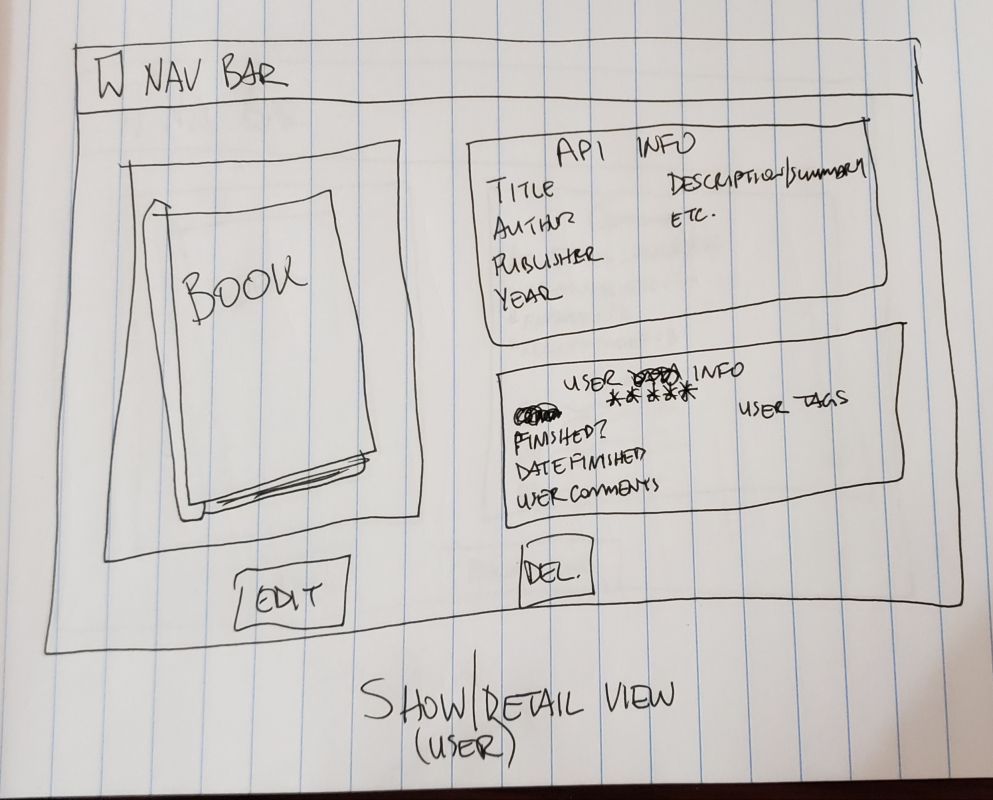 NAV BAR
BOOK
API INFO
TITLE
AUTHOR
PUBLISHER
YEAR
DESCRIPTION/SUMMARY
ETC.
USER INFO
*****
FINISHED?
DATE FINISHED
USER COMMENTS
USER TAGS
EDIT
DEL.
SHOW/DETAIL VIEW
(USER)